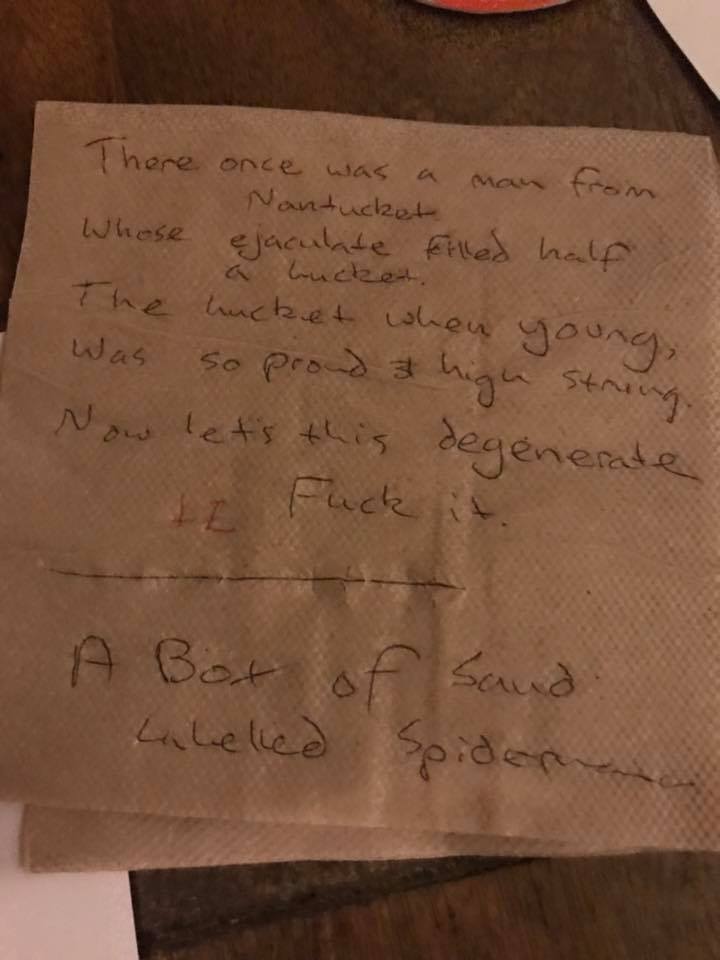 There once was a man from
Nantucket
Whose ejaculate filled half
a bucket.
The bucket when young,
Was so proud & high strung.
Now let's this degenerate
Fuck it.
A Box of Sand
Labelled Spiderman